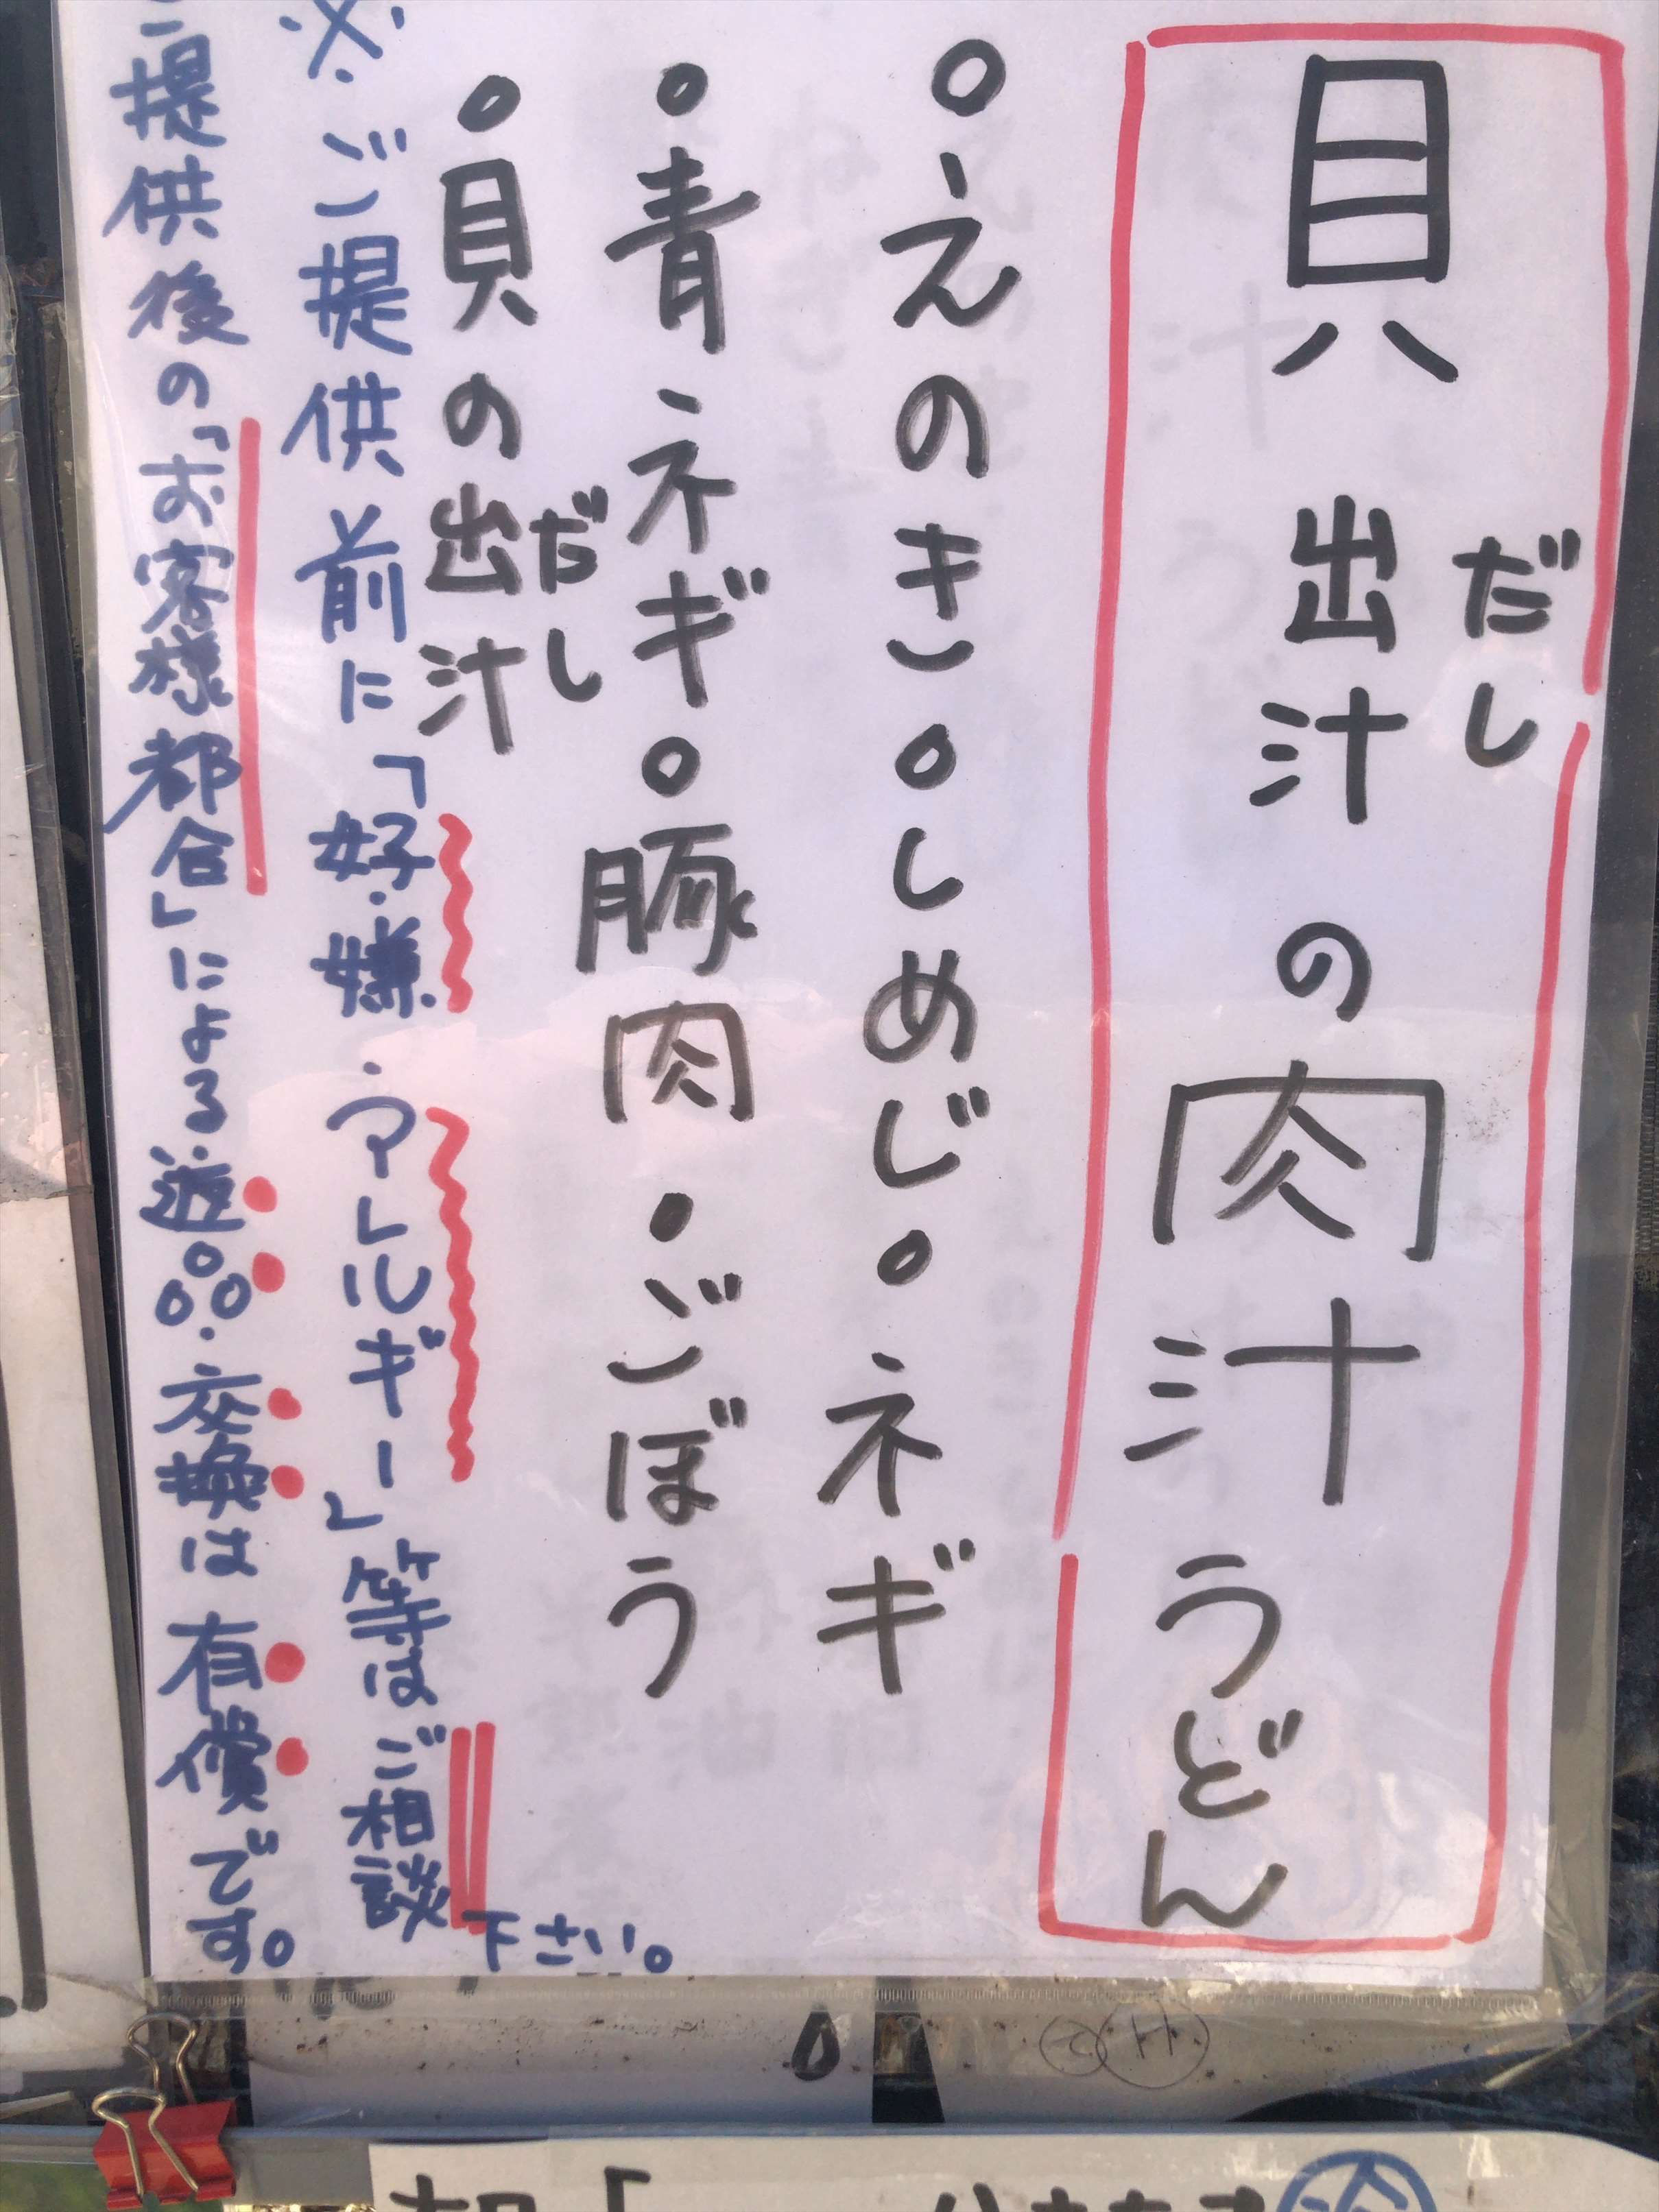 貝出汁の肉汁うどん
だし
・えのき・しめじ・ネギ
・青ネギ・豚肉・ごぼう
・貝の出汁
だし
※ご提供前に「好・嫌・アレルギー」等はご相談下さい。
ご提供後の「お客様都合」による返品・交換は有償です。